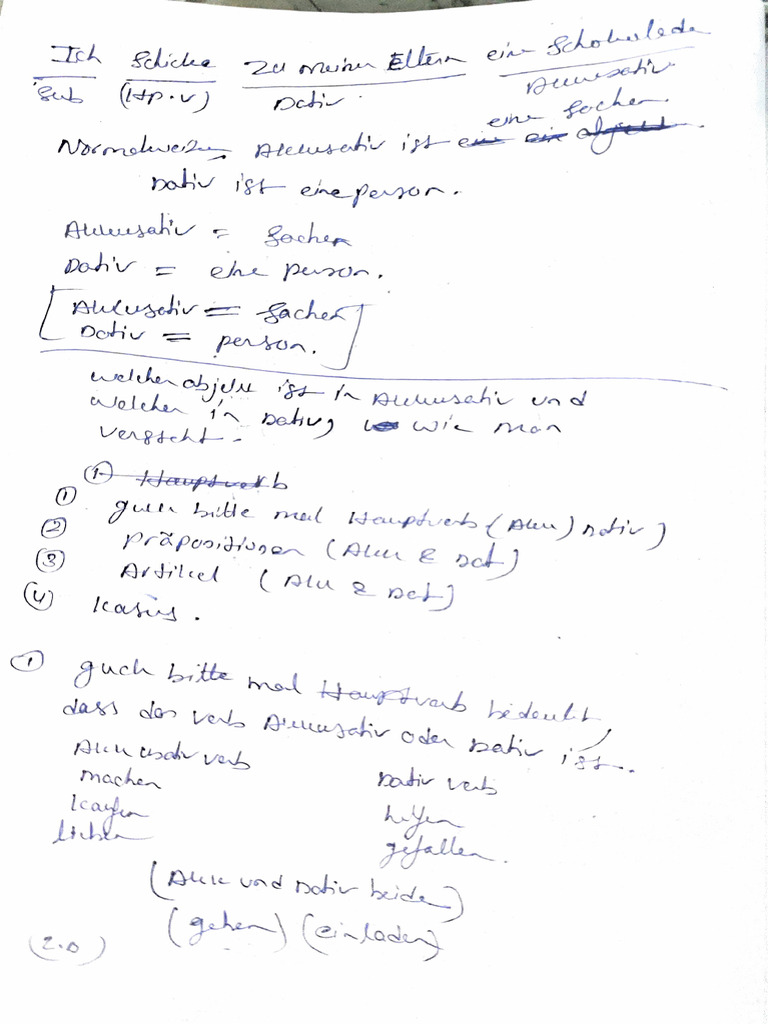 Ich schicke zu meinen Eltern eine Schokolade
Sub (Hp.v) Dativ Akkusativ
eine Sachen.
Normalweize Akkusativ ist ein ein objekt.
Dativ ist eine person.
Akkusativ = Sachen
Dativ = eine person.
[Akkusativ = Sachen
Dativ = person.]
welchen objekt ist in Akkusativ und
welchen in Dativ, wie man
versteht.
① Hauptverb
① guck bitte mal Hauptverb (Akk) Dativ)
② präpositionen (Akk & Dat)
③ Artikel (Akk & Dat)
④ Kasus.
① guck bitte mal Hauptverb bedeutet,
dass das verb Akkusativ oder Dativ ist.
Akkusativ verb Dativ verb
machen helfen
kaufen gefallen.
lieben
(Akk und Dativ beiden)
(gehen) (einladen)
(2.0)